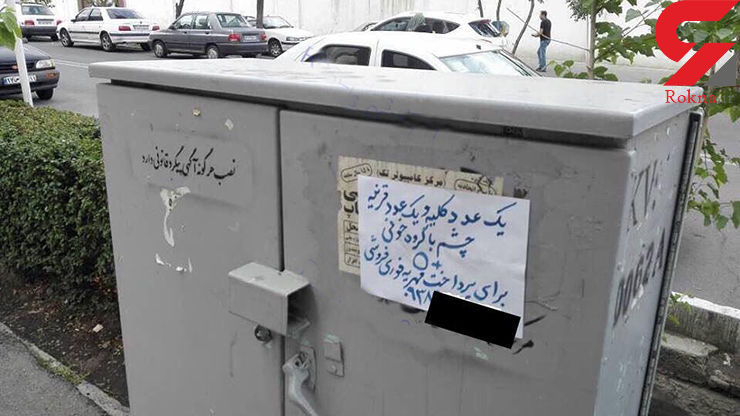 Rokna
نصب هرگونه آگهی پیگرد قانونی دارد
مرکز کامپیوتر تک
یک عدد کلیه و یک عدد قرنیه
چشم با گروه خونی
O
برای پرداخت مهریه فوری فروشی
۰۹۳۸